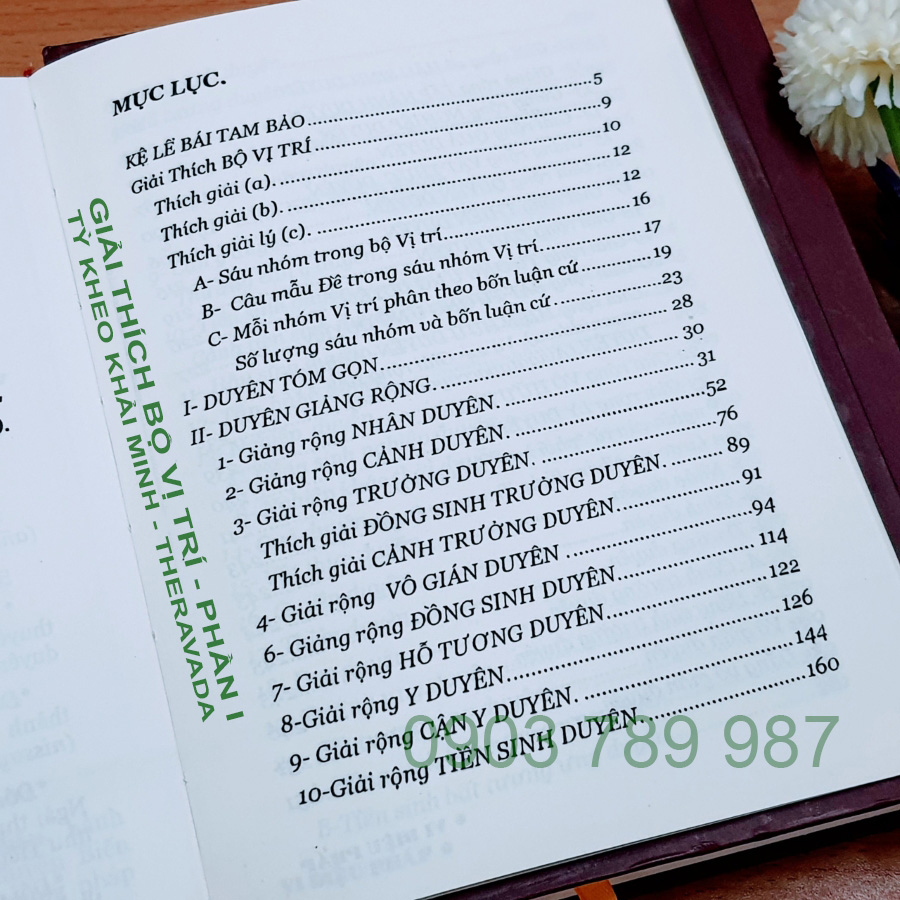 MỤC LỤC.
KỆ LỄ BÁI TAM BẢO........5
Giải Thích BỘ VỊ TRÍ........9
Thích giải (a).........10
Thích giải (b).........12
Thích giải lý (c). ........12
A- Sáu nhóm trong bộ Vị trí........16
B- Câu mẫu Đề trong sáu nhóm Vị trí........17
C- Mỗi nhóm Vị trí phân theo bốn luận cứ........19
Số lượng sáu nhóm và bốn luận cứ........23
I- DUYÊN TÓM GỌN........28
II- DUYÊN GIẢNG RỘNG........30
1- Giảng rộng NHÂN DUYÊN. ........31
2- Giảng rộng CẢNH DUYÊN. ........52
3- Giải rộng TRƯỞNG DUYÊN. ........76
Thích giải ĐỒNG SINH TRƯỞNG DUYÊN. ........ 89
Thích giải CẢNH TRƯỞNG DUYÊN........91
4- Giải rộng VÔ GIÁN DUYÊN ........94
6- Giảng rộng ĐỒNG SINH DUYÊN........114
7- Giải rộng HỖ TƯƠNG DUYÊN........122
8-Giải rộng Y DUYÊN........126
9- Giải rộng CẬN Y DUYÊN. ........144
10-Giải rộng TIỀN SINH DUYÊN ........160
GIẢI THÍCH BỘ VỊ TRÍ - PHẦN I
TỲ KHEO KHẢI MINH - THERAVADA
0903 789 987